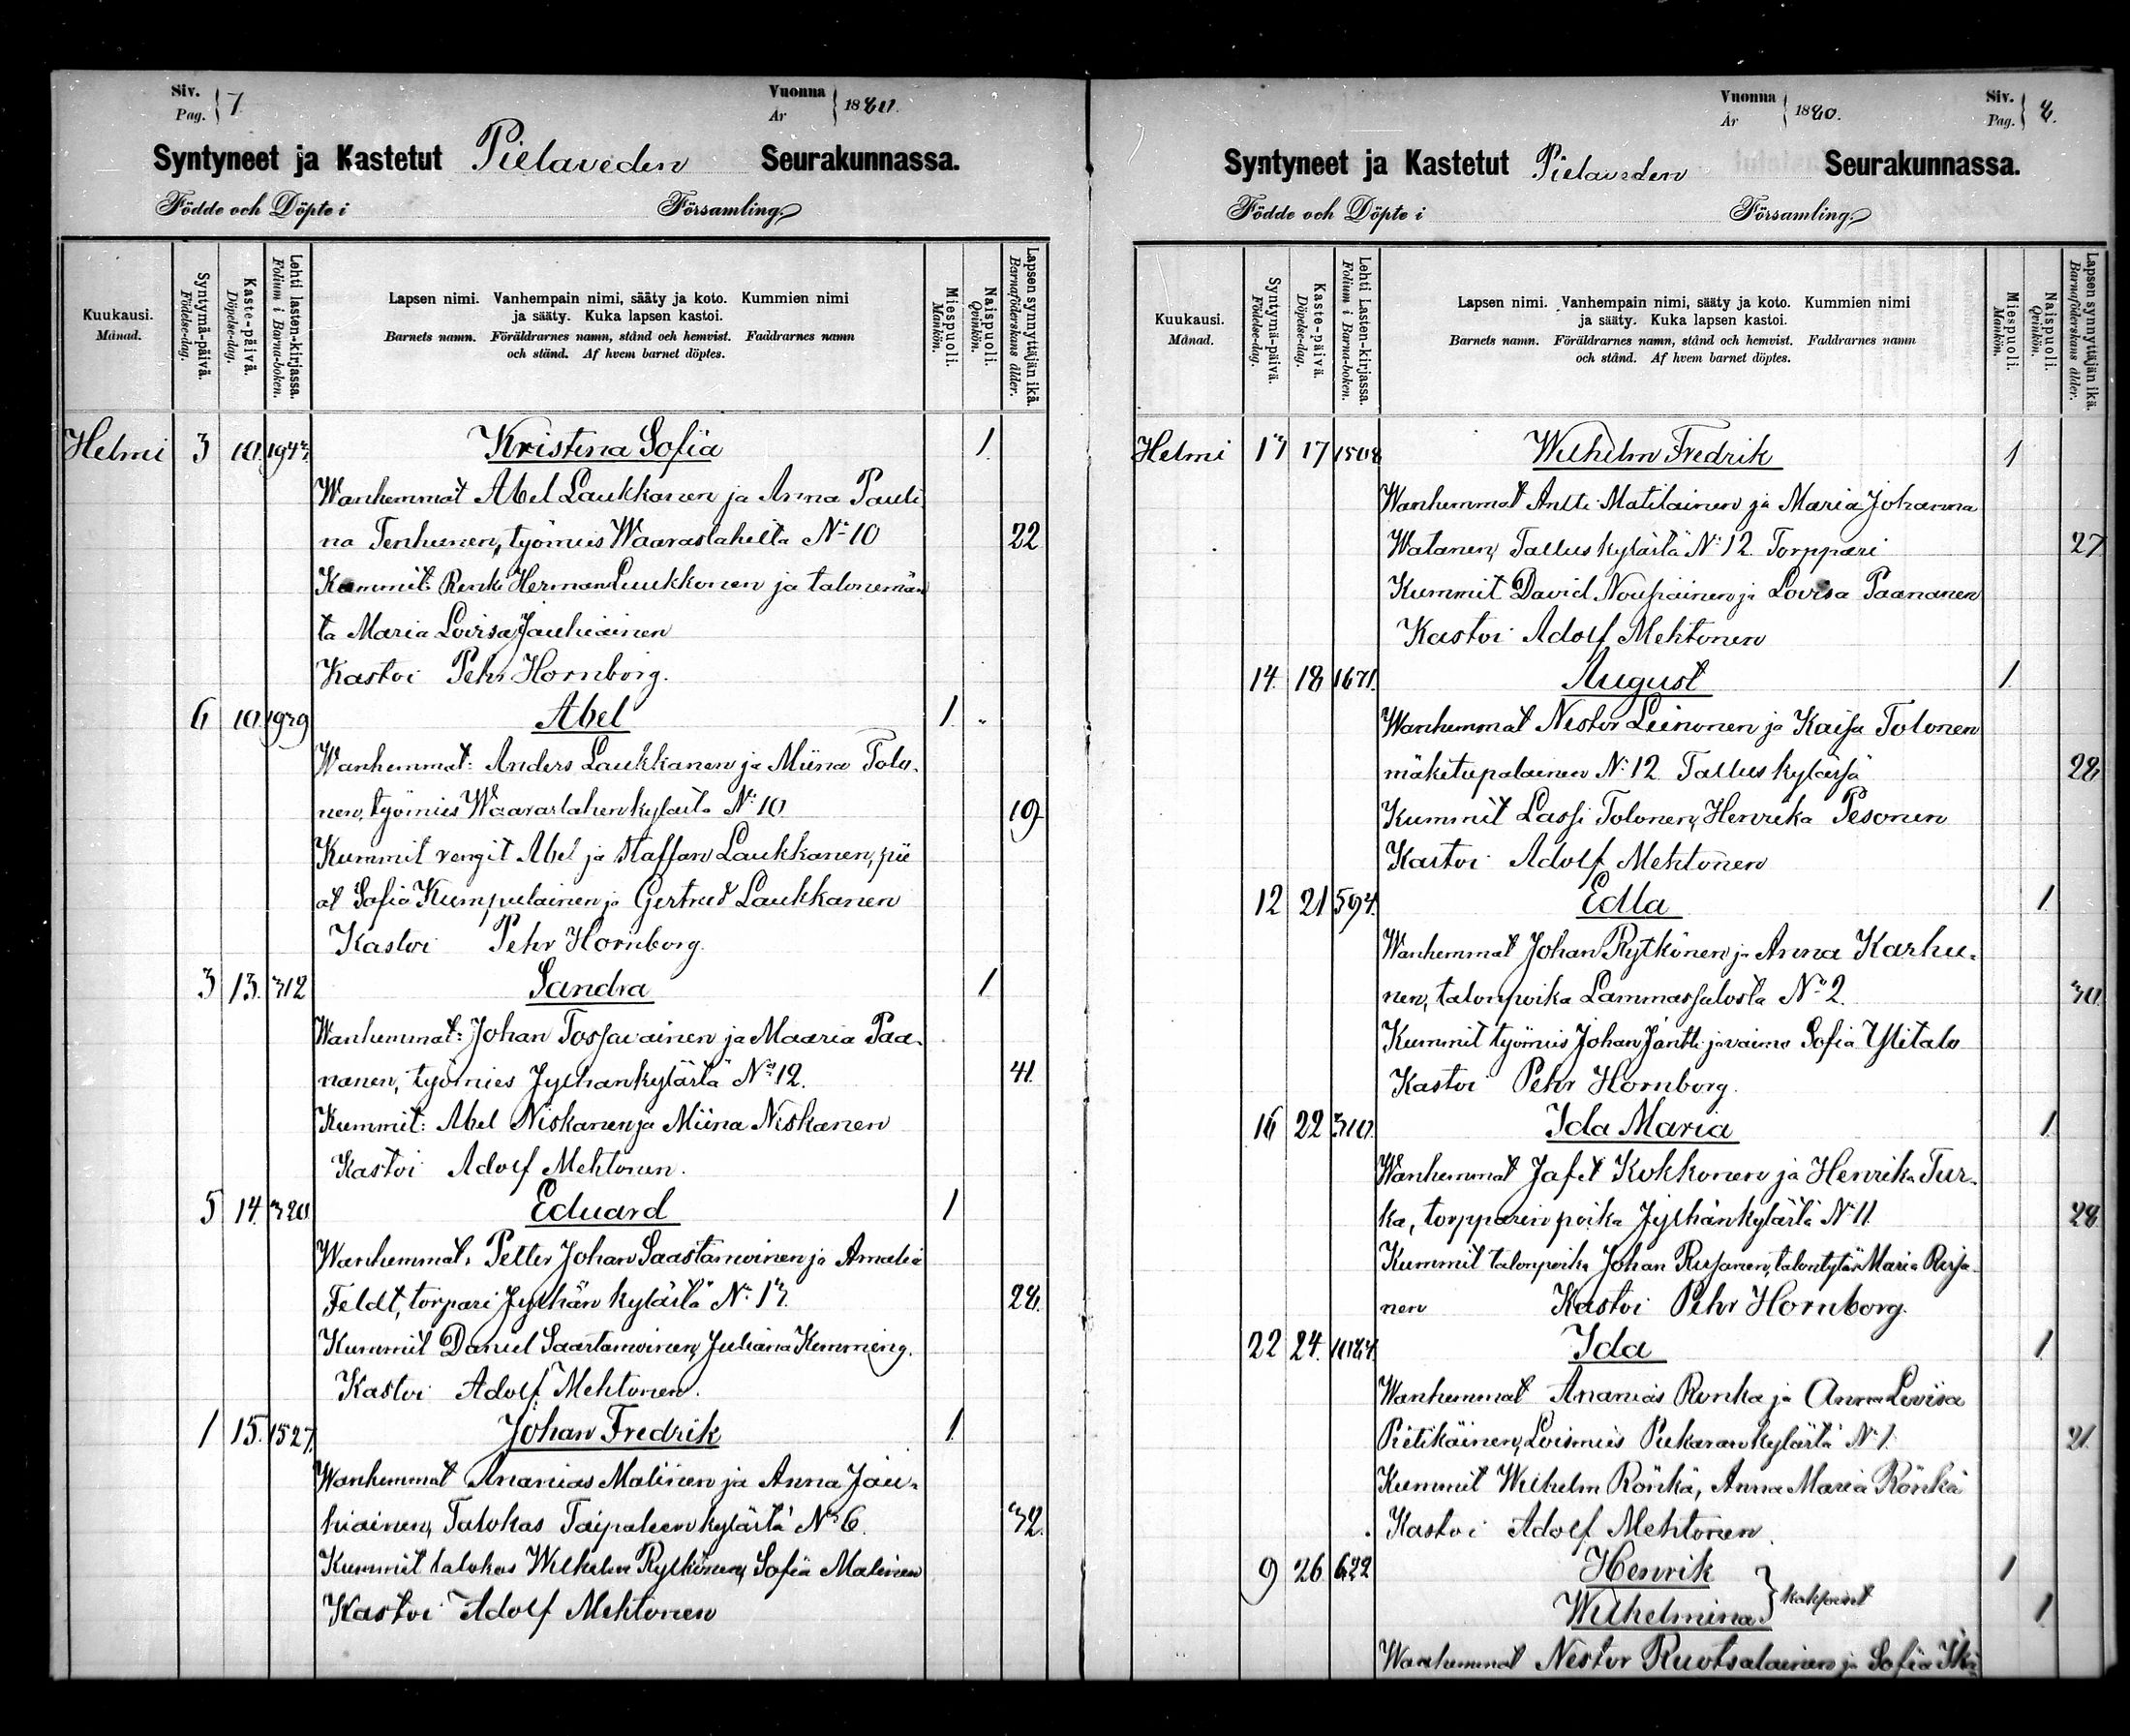 Siv. Pag. 7. Vuonna År 1880.
Syntyneet ja Kastetut Pielaveden Seurakunnassa.
Födde och Döpte i Församling.
Kuukausi. Månad.
Syntymä-päivä. Födelse-dag.
Kaste-päivä. Döpelse-dag.
Lehti lasten-kirjassa. Folium i Barna-boken.
Lapsen nimi. Vanhempain nimi, sääty ja koto. Kummien nimi
ja sääty. Kuka lapsen kastoi.
Barnets namn. Föräldrarnes namn, stånd och hemvist. Faddrarnes namn
och stånd. Af hvem barnet döptes.
Miespuoli. Mankön.
Naispuoli. Qvinkön.
Lapsen synnyttäjän ikä. Barnaföderskans ålder.
Helmi 3 10 Kristina Sofia 1.
Wanhemmat Abel Laukkanen ja Anna Pauli
na Tenhunen, työmies Waaraslahelta N:o 10 22
Kummit: Renki Herman Luukkonen ja talonemän
tä Maria Lovisa Jauhiainen
Kastoi Pehr Hornborg.
6 10 1929 Abel 1.
Wanhemmat: Anders Laukkanen ja Miina Tolo-
nen, työmies Waaraslahenkylältä N:o 10 19
Kummit rengit Abel ja Staffan Laukkanen, pii
at Sofia Kumpulainen ja Gertrud Laukkanen
Kastoi Pehr Hornborg.
3 13. 312 Sandra 1
Wanhemmat: Johan Tossavainen ja Maaria Paa-
nanen, työmies Jylhänkylästä N:o 12. 41.
Kummit: Abel Niskanen ja Miina Niskanen
Kastoi Adolf Mehtonen.
5 14. 320 Eduard 1
Wanhemmat: Petter Johan Saastamoinen ja Amalia
Feldt, torpari Jylhän kylästä N:o 13. 28.
Kummit Daniel Saastamoinen, Juliana Kemming.
Kastoi Adolf Mehtonen.
1 15. 1527. Johan Fredrik 1.
Wanhemmat Ananias Malinen ja Anna Jau-
hiainen, Talokas Taipaleenkylästä N:o 6. 32.
Kummit talokas Wilhelm Rytkönen, Sofia Malinen
Kastoi Adolf Mehtonen
Vuonna År 1880. Siv. Pag. 8.
Syntyneet ja Kastetut Pielaveden Seurakunnassa.
Födde och Döpte i Församling.
Kuukausi. Månad.
Syntymä-päivä. Födelse-dag.
Kaste-päivä. Döpelse-dag.
Lehti Lasten-kirjassa. Folium i Barna-boken.
Lapsen nimi. Vanhempain nimi, sääty ja koto. Kummien nimi
ja sääty. Kuka lapsen kastoi.
Barnets namn. Föräldrarnes namn, stånd och hemvist. Faddrarnes namn
och stånd. Af hvem barnet döptes.
Miespuoli. Mankön.
Naispuoli. Qvinkön.
Lapsen synnyttäjän ikä. Barnaföderskans ålder.
Helmi 13 17 1508 Wilhelm Fredrik 1
Wanhemmat Antti Matilainen ja Maria Johanna
Watanen, Tallus kylästä N:o 12. Torppari 27
Kummit David Nousiainen ja Lovisa Paananen
Kastoi Adolf Mehtonen
14. 18 1671. August 1.
Wanhemmat Nestor Leinonen ja Kaisa Tolonen
mäkitupalainen N:o 12 Tallus kylässä 28
Kummit Lassi Tolonen, Henrika Pesonen
Kastoi Adolf Mehtonen
12 21 594. Edla 1.
Wanhemmat Johan Rytkönen ja Anna Karhu-
nen, talonpoika Lammassalosta N:o 2. 30.
Kummit työmies Johan Jäntti ja vaimo Sofia Ylitalo
Kastoi Pehr Hornborg.
16 22 310. Ida Maria 1.
Wanhemmat Jafet Kokkonen ja Henrika Tur-
ka, torpparin poika Jylhänkylästä N:o 11. 28
Kummit talonpoika Johan Rusanen, talontytär Maria Rusa-
nen Kastoi Pehr Hornborg.
22 24. Ida 1.
Wanhemmat Ananias Ronka ja Anna Lovisa
Pietikäinen, Loismies Pukarankylästä N:o 1. 21.
Kummit Wilhelm Rönkä, Anna Maria Rönkä
Kastoi Adolf Mehtonen.
9 26 622 Henrik 1
Wilhelmina } kaksoiset 1
Wanhemmat Nestor Ruotsalainen ja Sofia